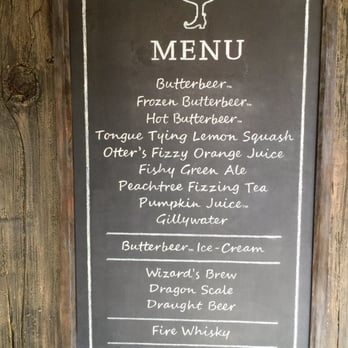 MENU
Butterbeer™
Frozen Butterbeer™
Hot Butterbeer™
Tongue Tying Lemon Squash
Otter's Fizzy Orange Juice
Fishy Green Ale
Peachtree Fizzing Tea
Pumpkin Juice™
Gillywater
Butterbeer™ Ice-Cream
Wizard's Brew
Dragon Scale
Draught Beer
Fire Whisky